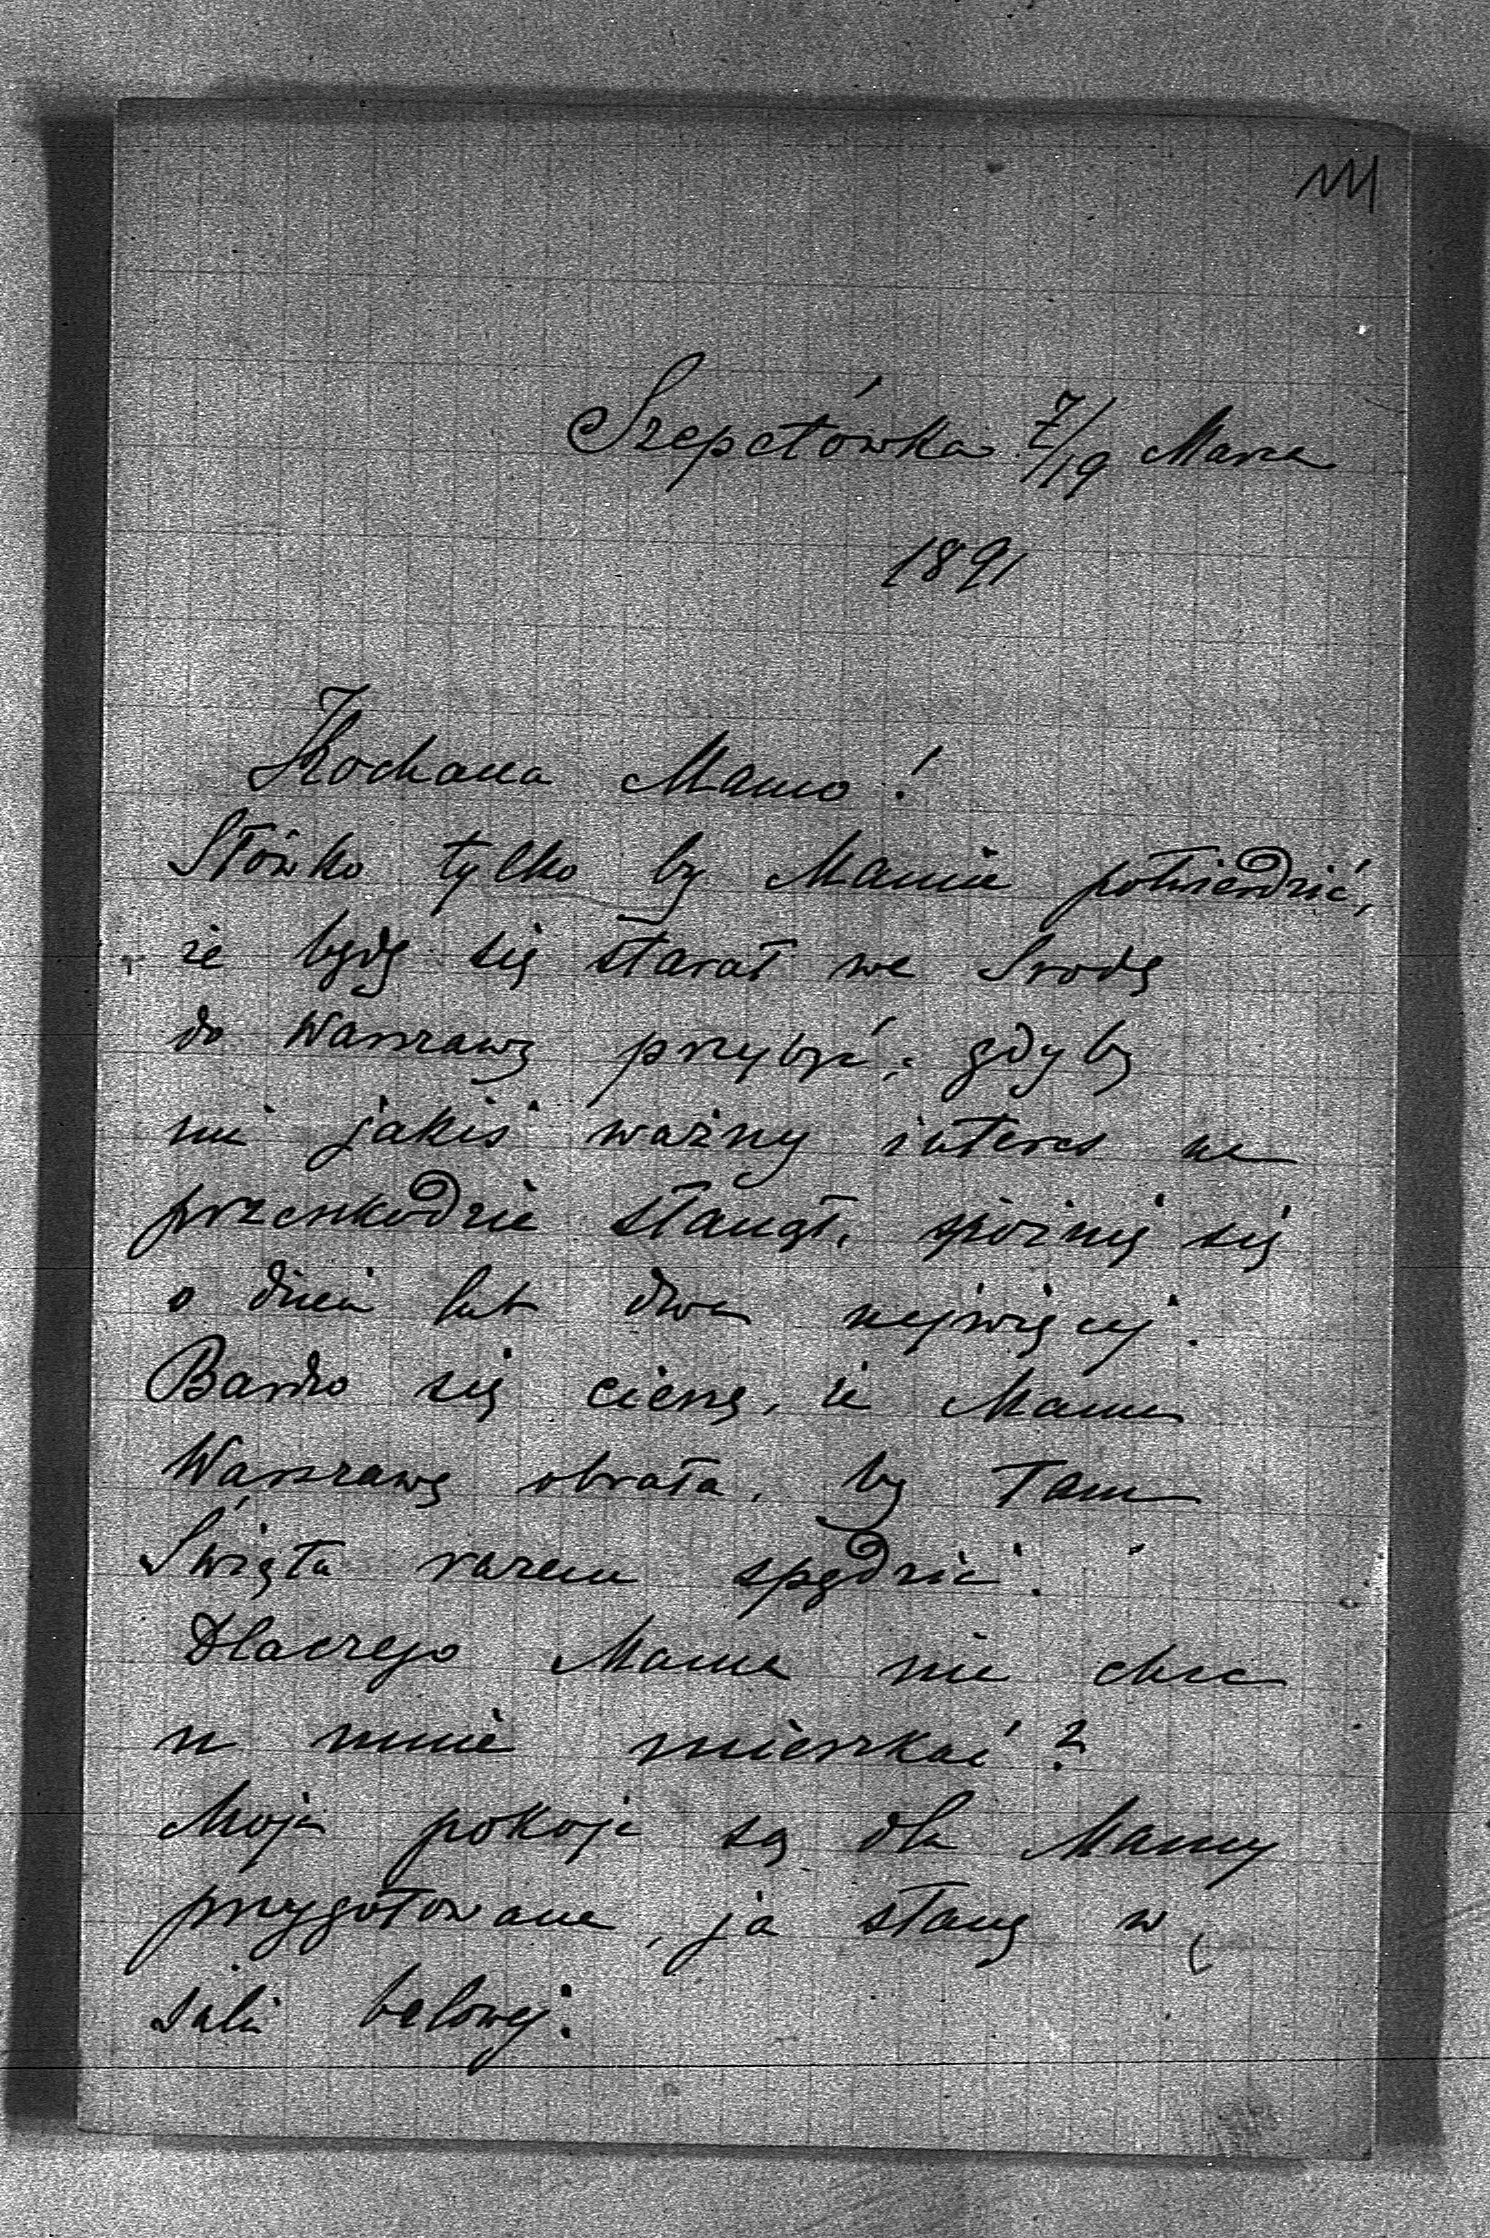 Szepetówka 7/19 Marca
1891
Kochana Mamo!
Słówko tylko by Mamie potwierdzić,
że będę się starał we Srodę
do Warszawy przybyć; gdyby
mi jakiś ważny interes na
przeszkodzie stanął, spóźnię się
o dzień lub dwa najwięcej.
Bardzo się cieszę, że Mama
Warszawę obrała, by Tam
Święta razem spędzić.
Dlaczego Mama nie chce
u mnie mieszkać?
Moje pokoje są dla Mamy
przygotowane, ja stanę w
sali balowej.